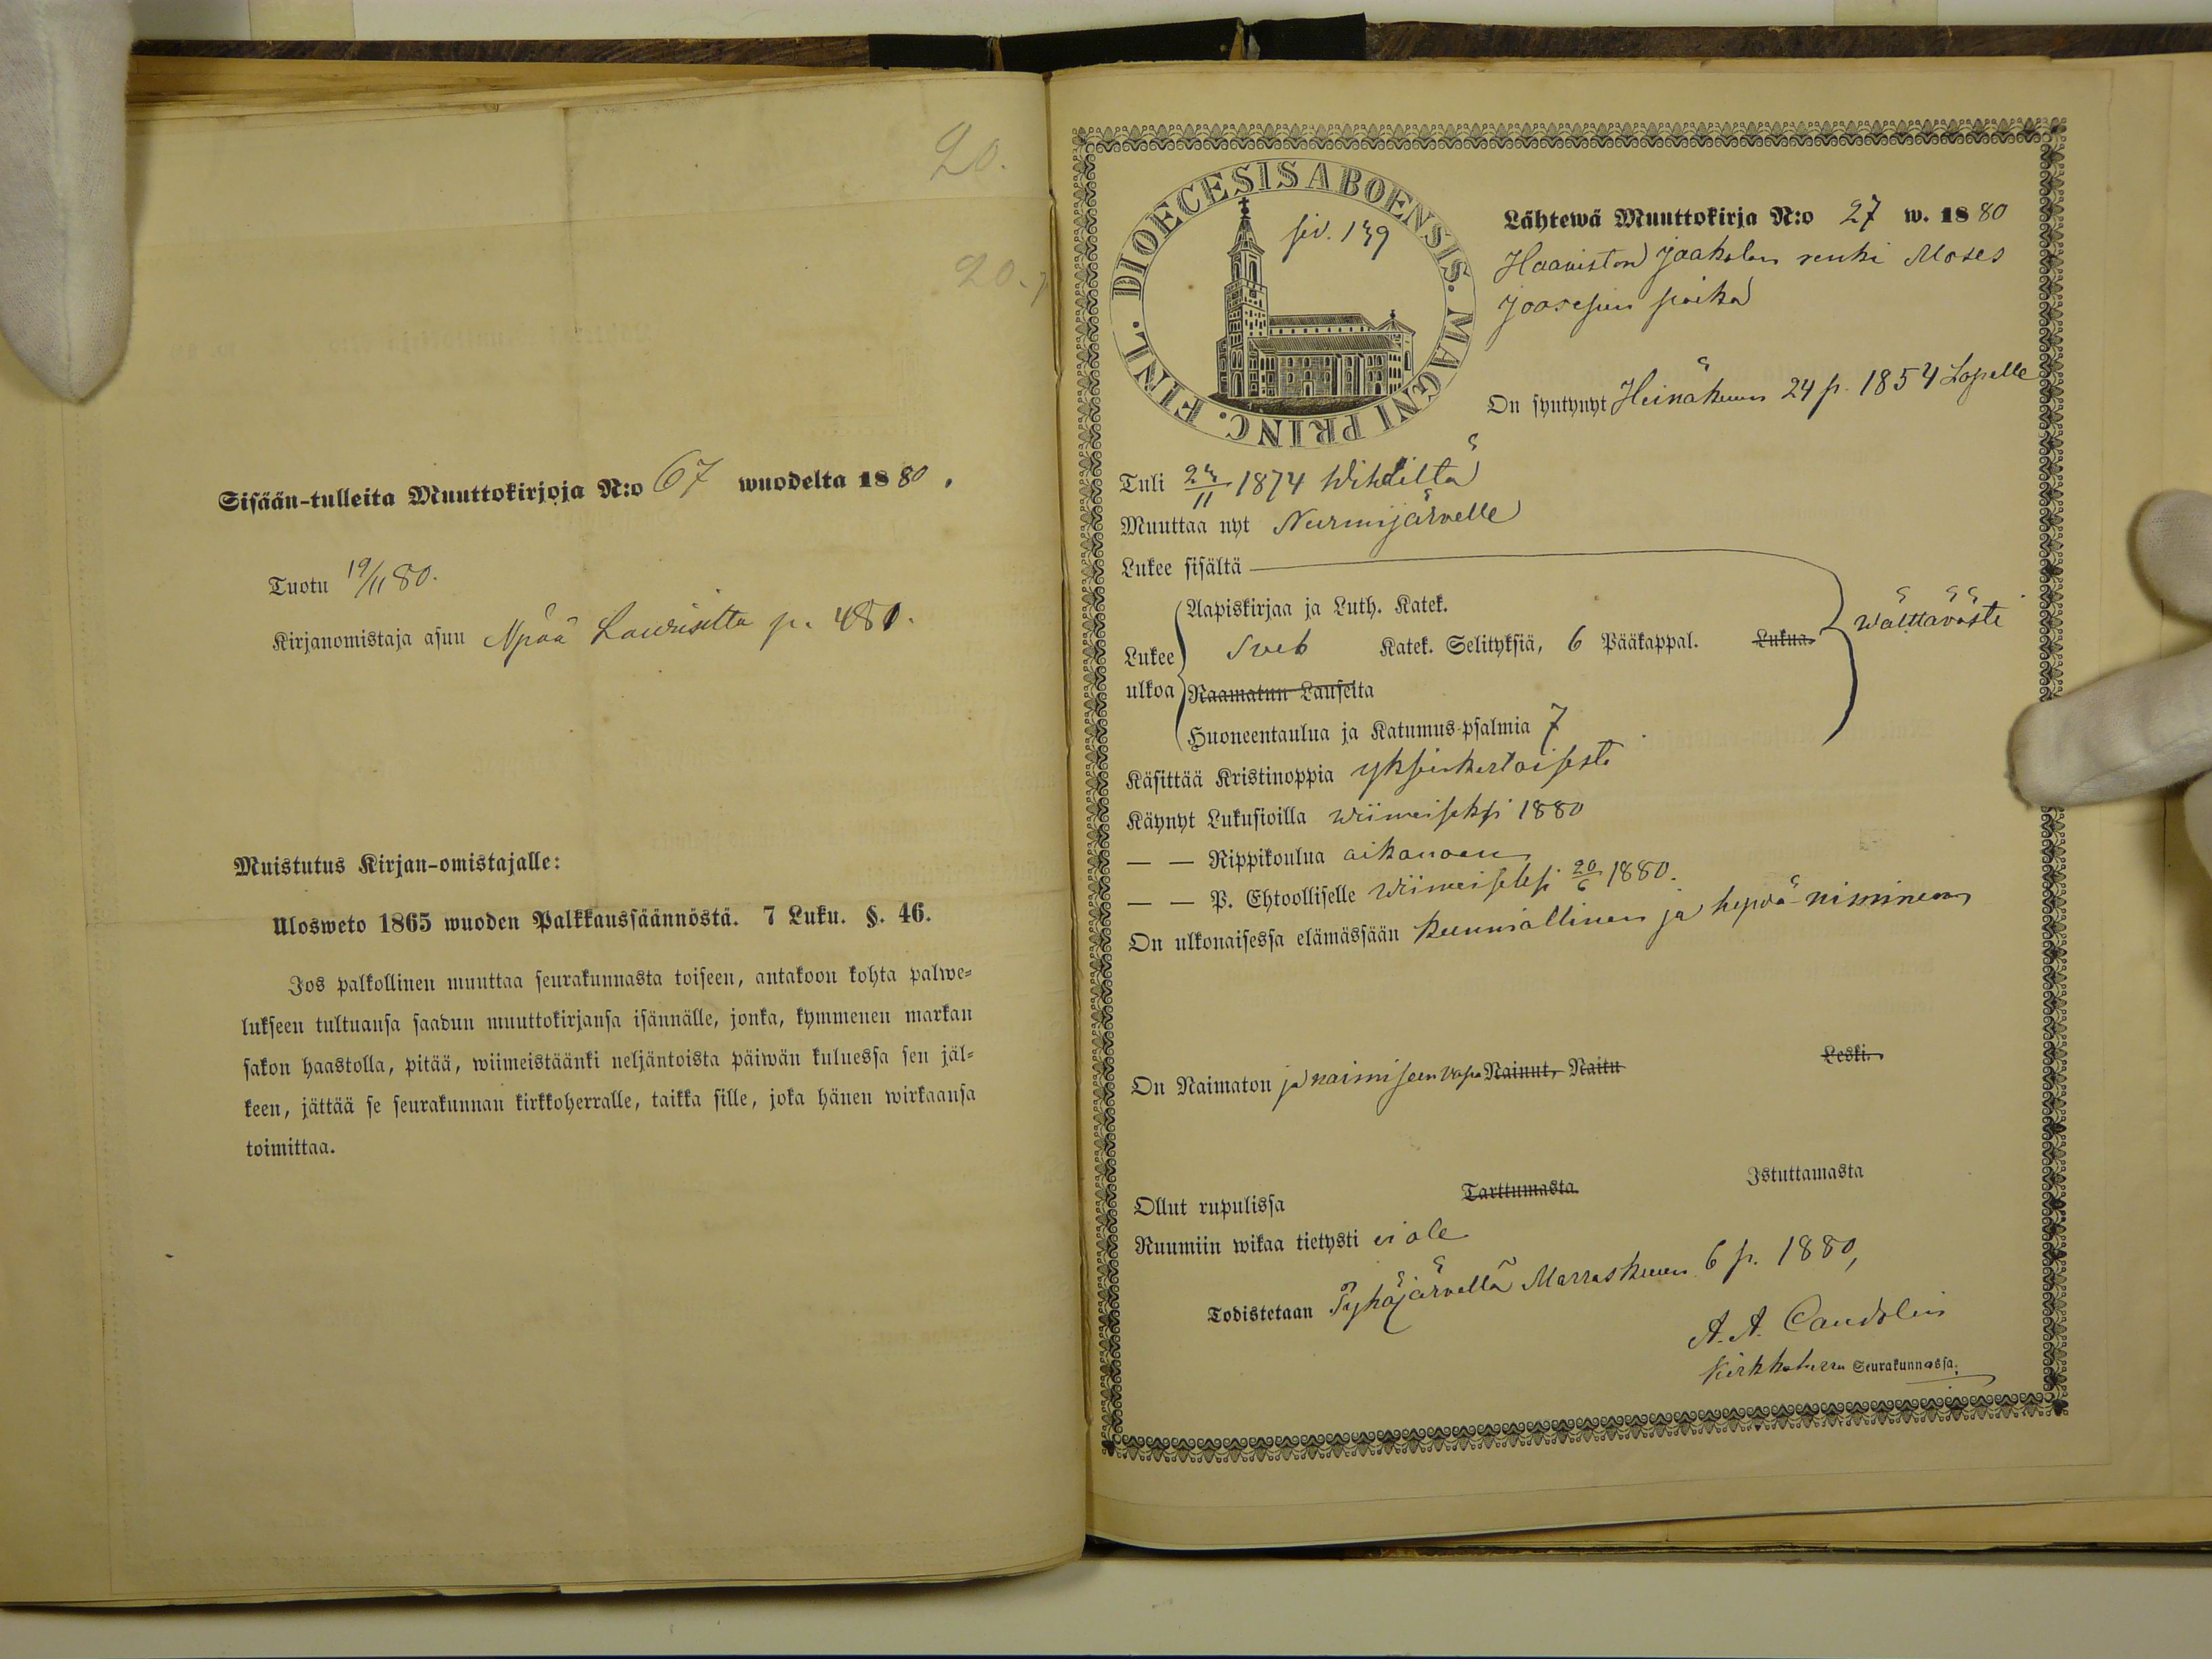 20.
20.
Sisään-tulleita Muuttokirjoja N:o 67 wuodelta 1880.
Tuotu 19/11 80.
Kirjanomistaja asuu Npää p. 480.
Muistutus Kirjan-omistajalle:
Ulosweto 1865 wuoden Palkkaussäännöstä. 7 Luku. §. 46.
Jos palkollinen muuttaa seurakunnasta toiseen, antakoon kohta palwe-
lukseen tultuansa saadun muuttokirjansa isännälle, jonka, kymmenen markan
sakon haastolla, pitää, wiimeistäänki neljäntoista päiwän kuluessa sen jäl-
keen, jättää se seurakunnan kirkkoherralle, taikka sille, joka hänen wirkaansa
toimittaa.
DIOECESIS ABOENSIS. MAGNI PRINC. FINL.
siv. 139
Lähtewä Muuttokirja N:o 27 w. 1880
Haaviston Jaakolan renki Moses
Joosepin poika
On syntynyt Heinäkuun 24 p. 1854 Lopella
Tuli 24/11 1874 Wihdiltä
Muuttaa nyt Nurmijärvelle
Lukee sisältä
Aapiskirjaa ja Luth. Katek.
Lukee Sveb Katek. Selityksiä, 6 Pääkappal. Lukua.
Wälttävästi
ulkoa Raamatun Lauseita
Huoneentaulua ja Katumus-psalmia 7
Käsittää Kristinoppia yksinkertaisesti
Käynyt Lukusioilla wiimeiseksi 1880
— — Rippikoulua aikanaan
— — P. Ehtoolliselle Wiimeiseksi 20/6 1880.
On ulkonaisessa elämässään kunniallinen ja hyvä-niminen
On Naimaton ja naimiseen vapa Nainut, Naitu Leski.
Ollut rupulissa Tarttumasta Istuttamasta
Ruumiin wikaa tietysti ei ole
Todistetaan Pyhäjärvellä Marraskuun 6 p. 1880,
A. A. Candolin
Kirkkoherra Seurakunnassa.